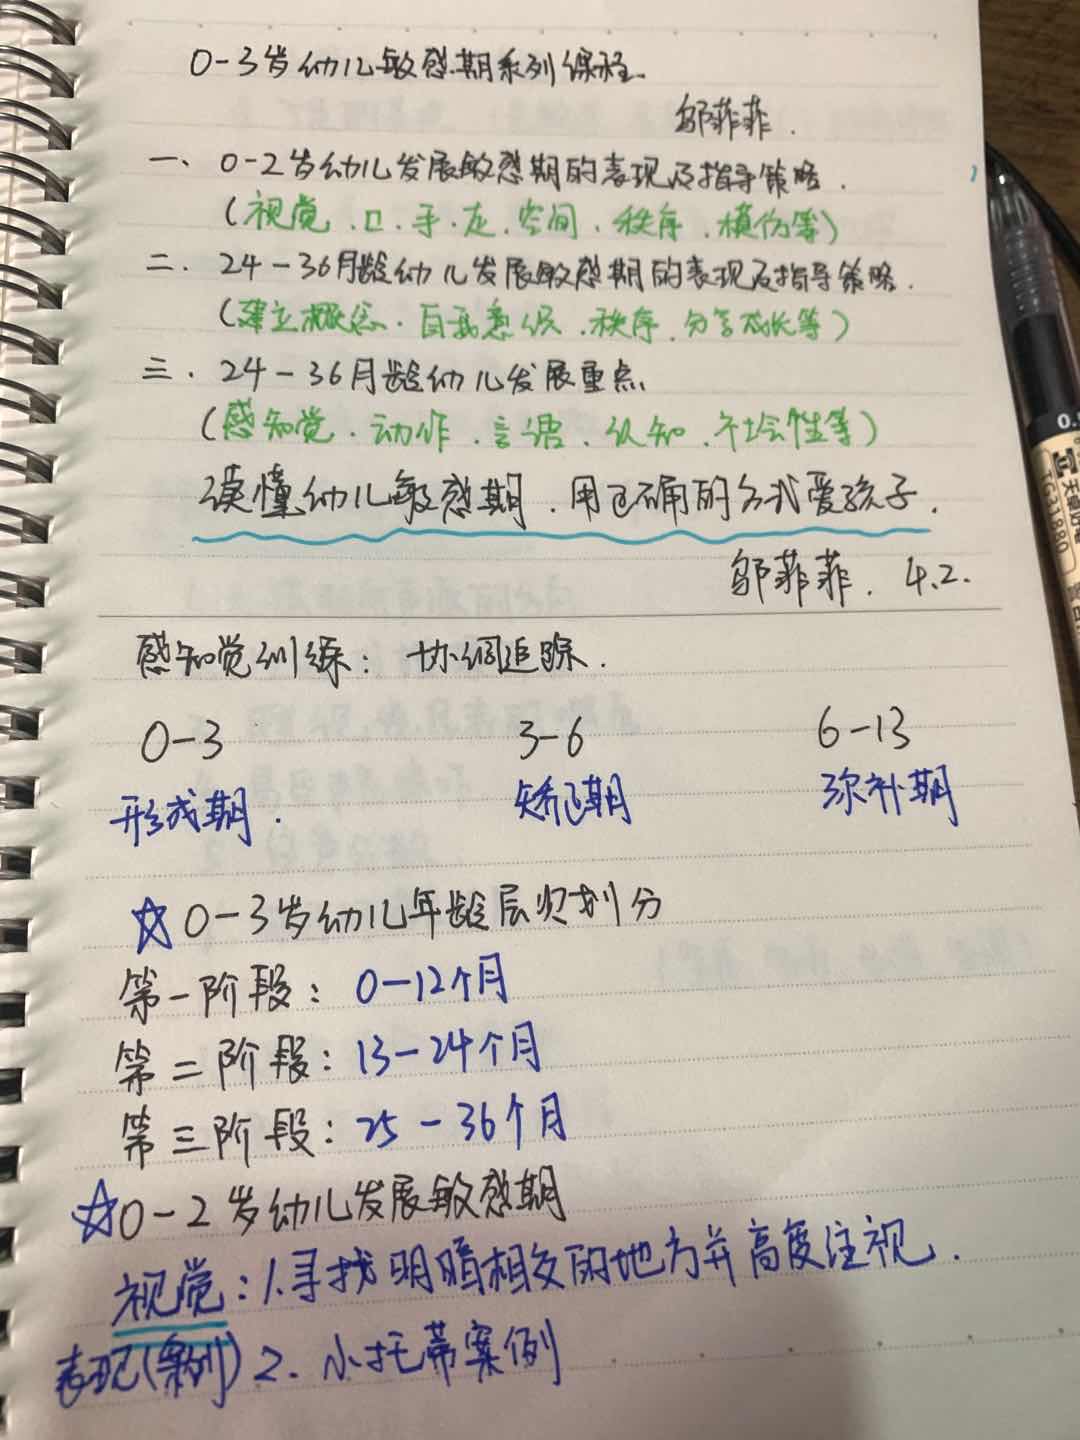 0-3岁幼儿敏感期系列课程.
邬菲菲.
一、0-2岁幼儿发展敏感期的表现及指导策略.
(视觉.口.手.足.空间.秩序.模仿等)
二.24-36月龄幼儿发展敏感期的表现及指导策略.
(建立概念.自我意识.秩序.分享成长等)
三.24-36月龄幼儿发展重点
(感知觉.动作.言语.认知.社会性等)
读懂幼儿敏感期.用正确的方式爱孩子.
邬菲菲.4.2.
感知觉训练:协调追踪.
0-3 3-6 6-13
形成期. 矫正期 弥补期
☆0-3岁幼儿年龄层次划分
第一阶段:0-12个月
第二阶段:13-24个月
第三阶段:25-36个月
☆0-2岁幼儿发展敏感期
视觉:1.寻找明暗相交的地方并高度注视.
表现(案例)2.小托蒂案例
0.
TG31880